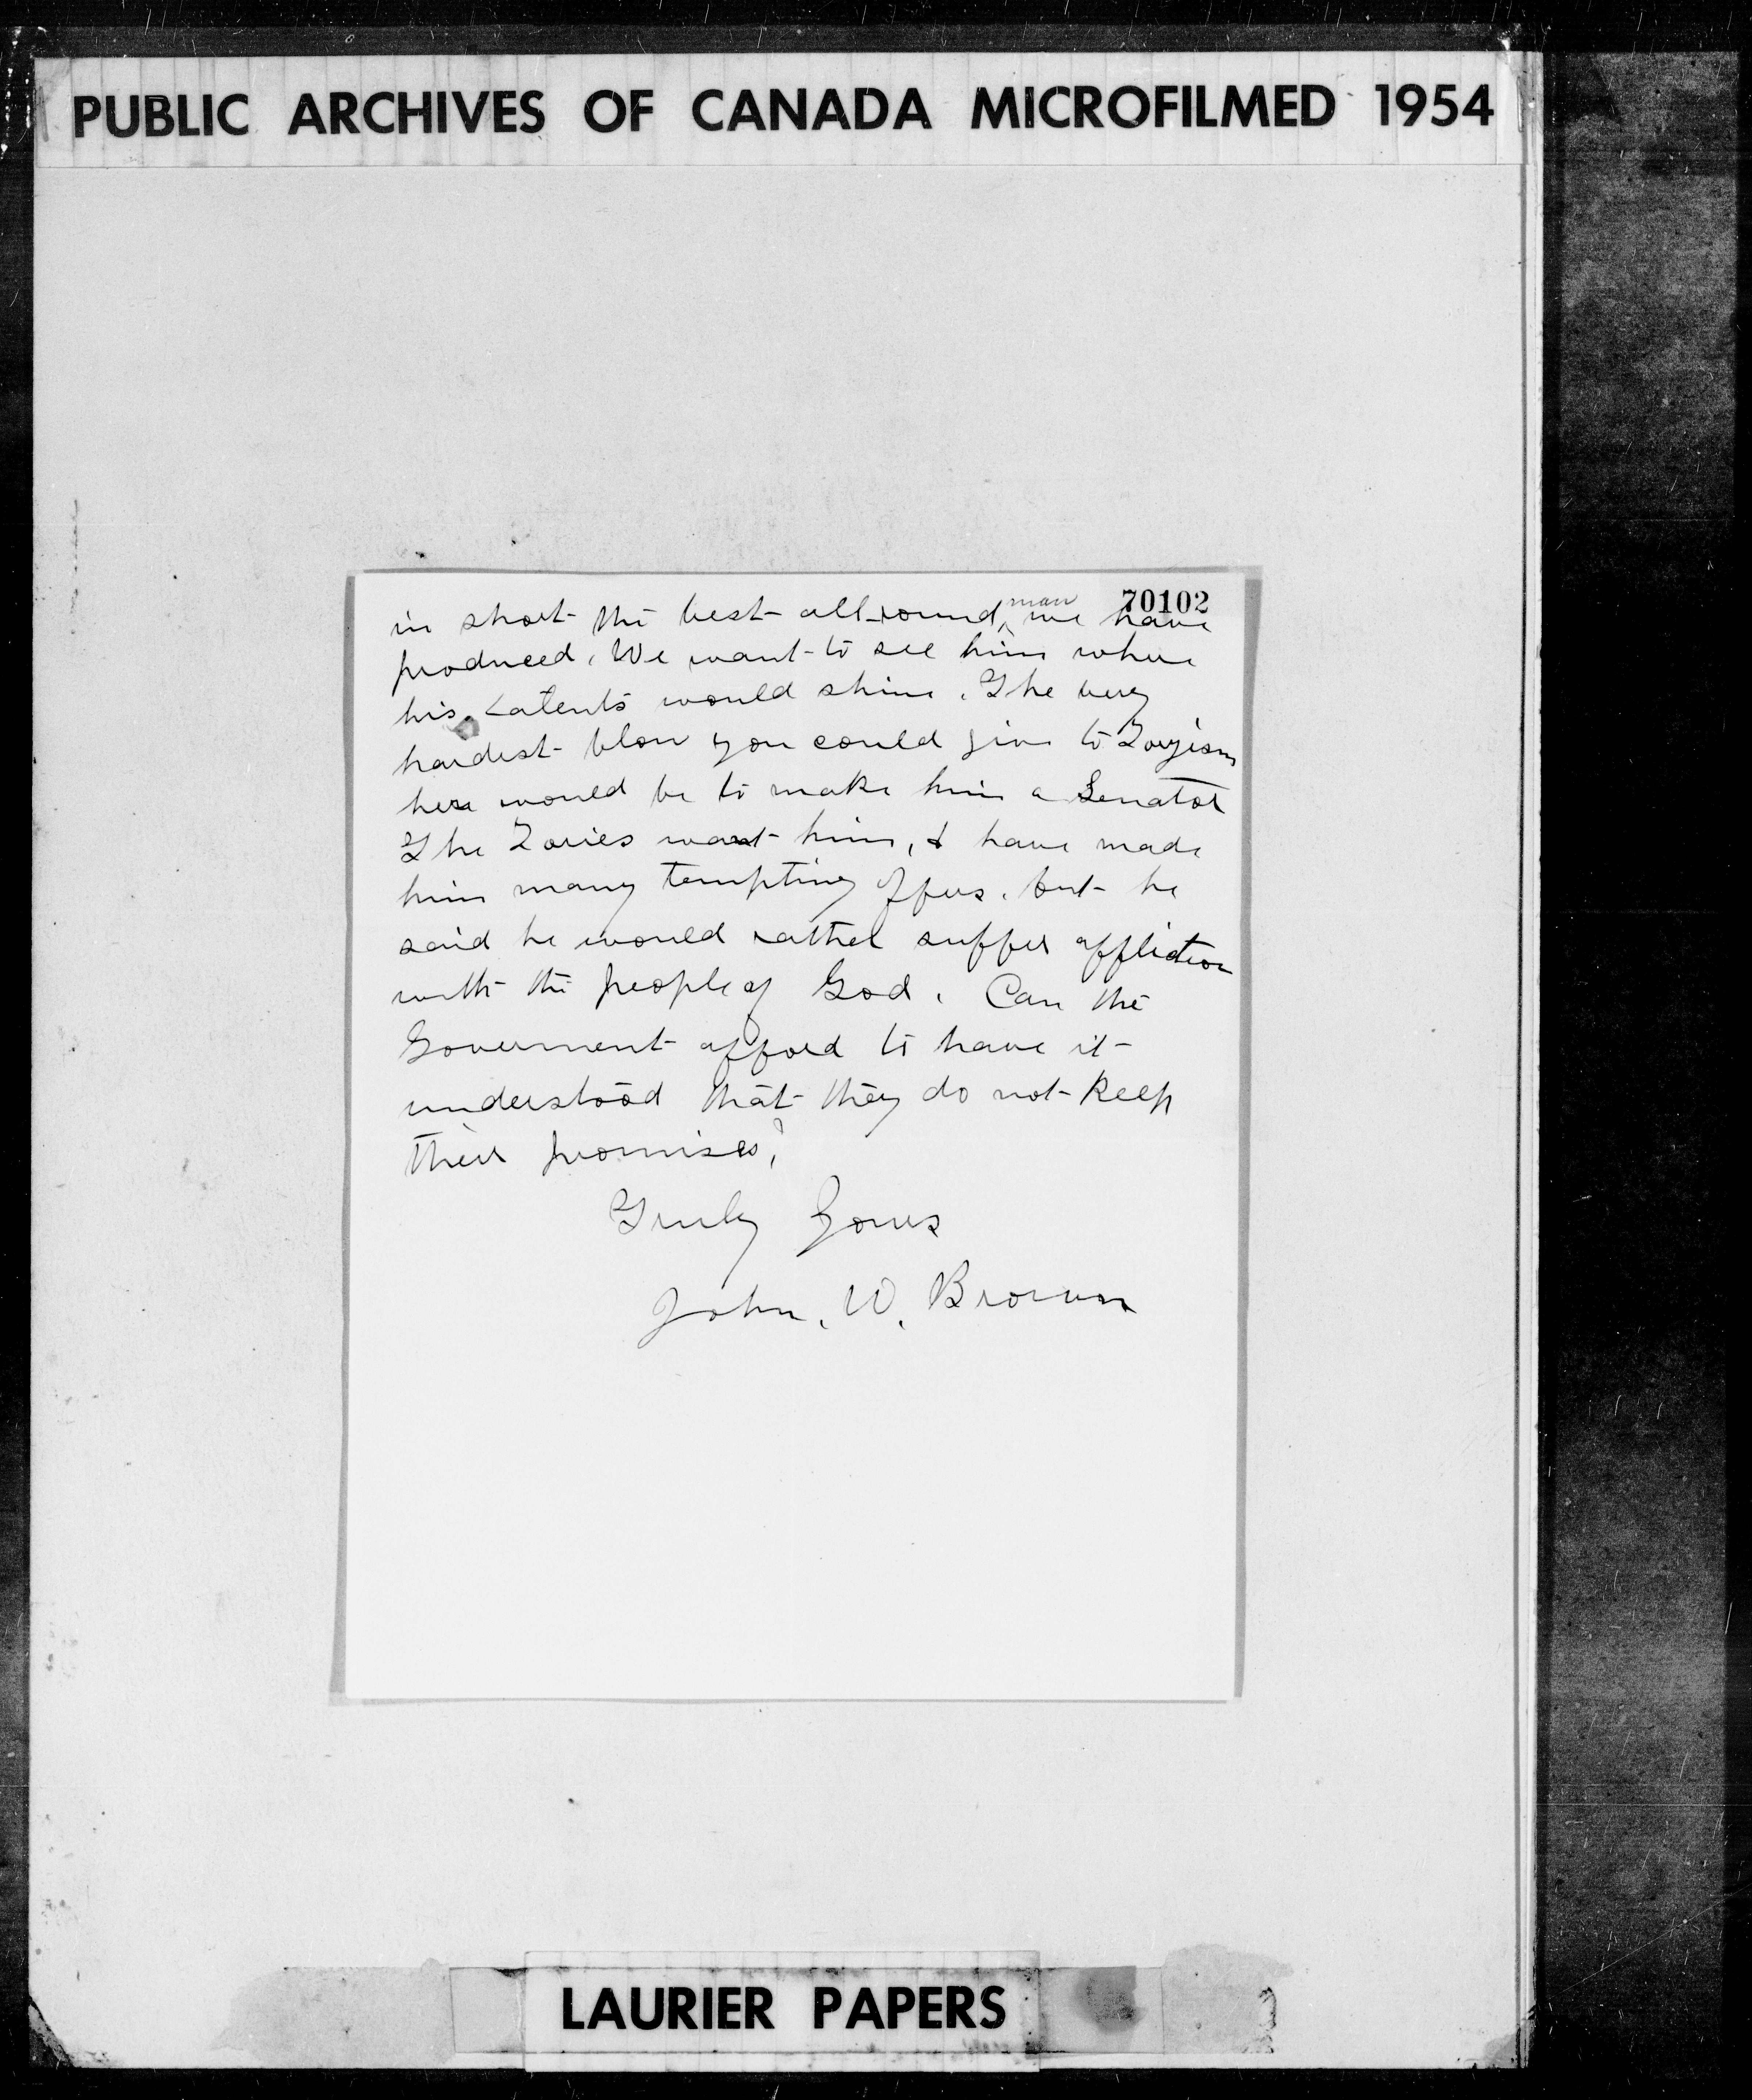 PUBLIC ARCHIVES OF CANADA MICROFILMED 1954
70102
in short the best all-round man we have
produced. We want to see him where
his latents would shine. The very
hardest blow you could give to Toryism
here would be to make him a Senator
The Tories want him, & have made
him many tempting offers. but he
said he would rather suffer affliction
with the people of God. Can the
Government afford to have it
understood that they do not keep
their promises?
Truly Yours
John. W. Brown
LAURIER PAPERS